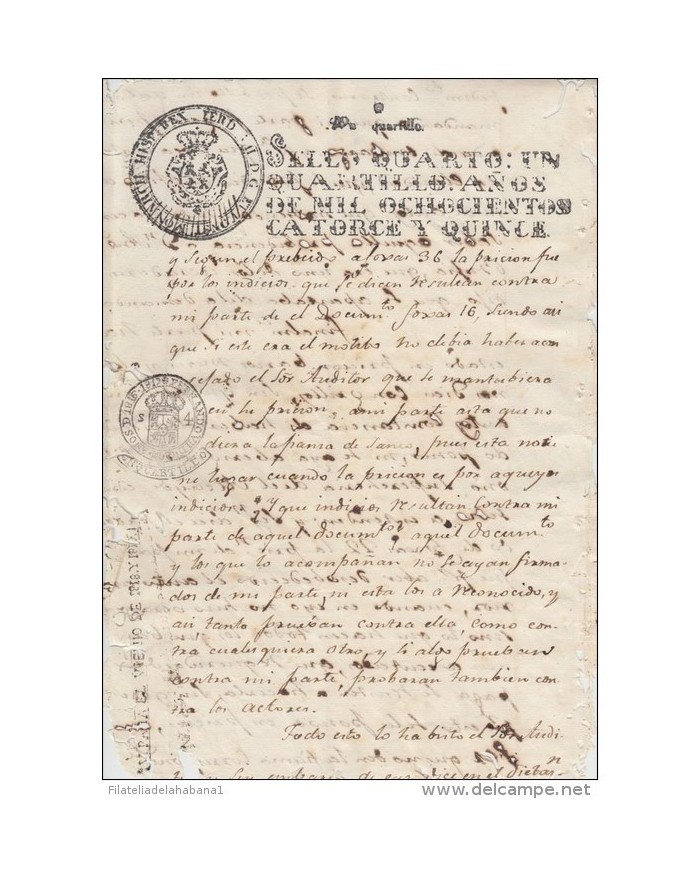 Un quartillo.
SELLO QUARTO: UN
QUARTILLO: AÑOS
DE MIL OCHOCIENTOS
CATORCE Y QUINCE
y segun el prebeido a foxas 36 la pricion fue
por los indicios que se dicen resultan contra
mi parte de el Docum.to foxas 16, siendo asi
que si este era el motibo no debia haber acon
sejado el Sor Auditor que se mantubiera
en la pricion a mi parte asta que no
diera la fianza de Sanea, pues esta no ti
ne lugar cuando la pricion es por aqueyos
indicios, Y que indicios resultan contra mi
parte de aquel docum.to, aquel docum.to
y los que lo acompañan no se ayan firma-
dos de mi parte, ni esta los a reconocido, y
asi tanto prueban contra ella como con-
tra cualesquiera otro, y si algo prueban
contra mi parte, probaran tambien con
tra los actores.
Todo esto lo ha bisto el Sor Audi-
sin embargo de
VALGA PARA EL VIENIO DE 1818 Y 1819
S 4
Filateliadelahabana1
delcampe.net